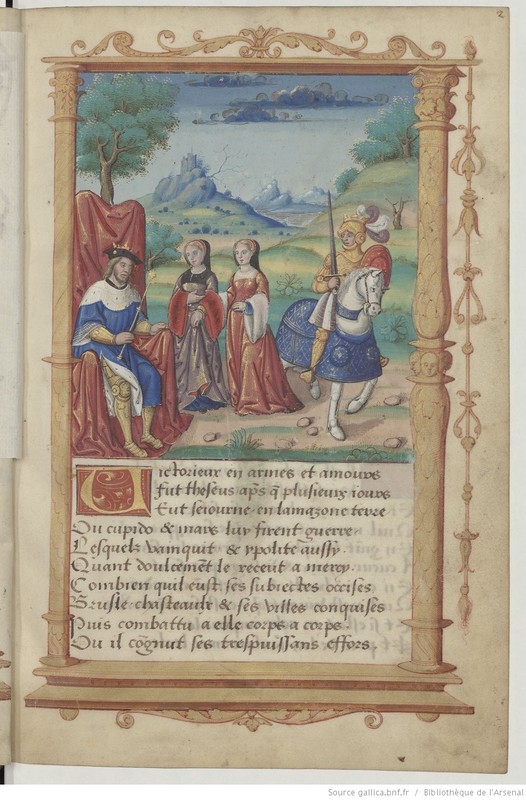 2
Victorieux en armes et amours
fut theseus ap̄s q̄ plusieux iours
Eut seiourne en lamazone terre
Ou cupido & mars luy firent guerre
Lesquelz vainquit & ypolite aussy.
Quant doulcemēt le receut a mercy.
Combien quil eust ses subiectes occises
Brusle chasteaulx & ses villes conquises
Puis combattu a elle corps a corps.
Ou il cognut ses trespuissans effors.
Source gallica.bnf.fr / Bibliothèque de l'Arsenal